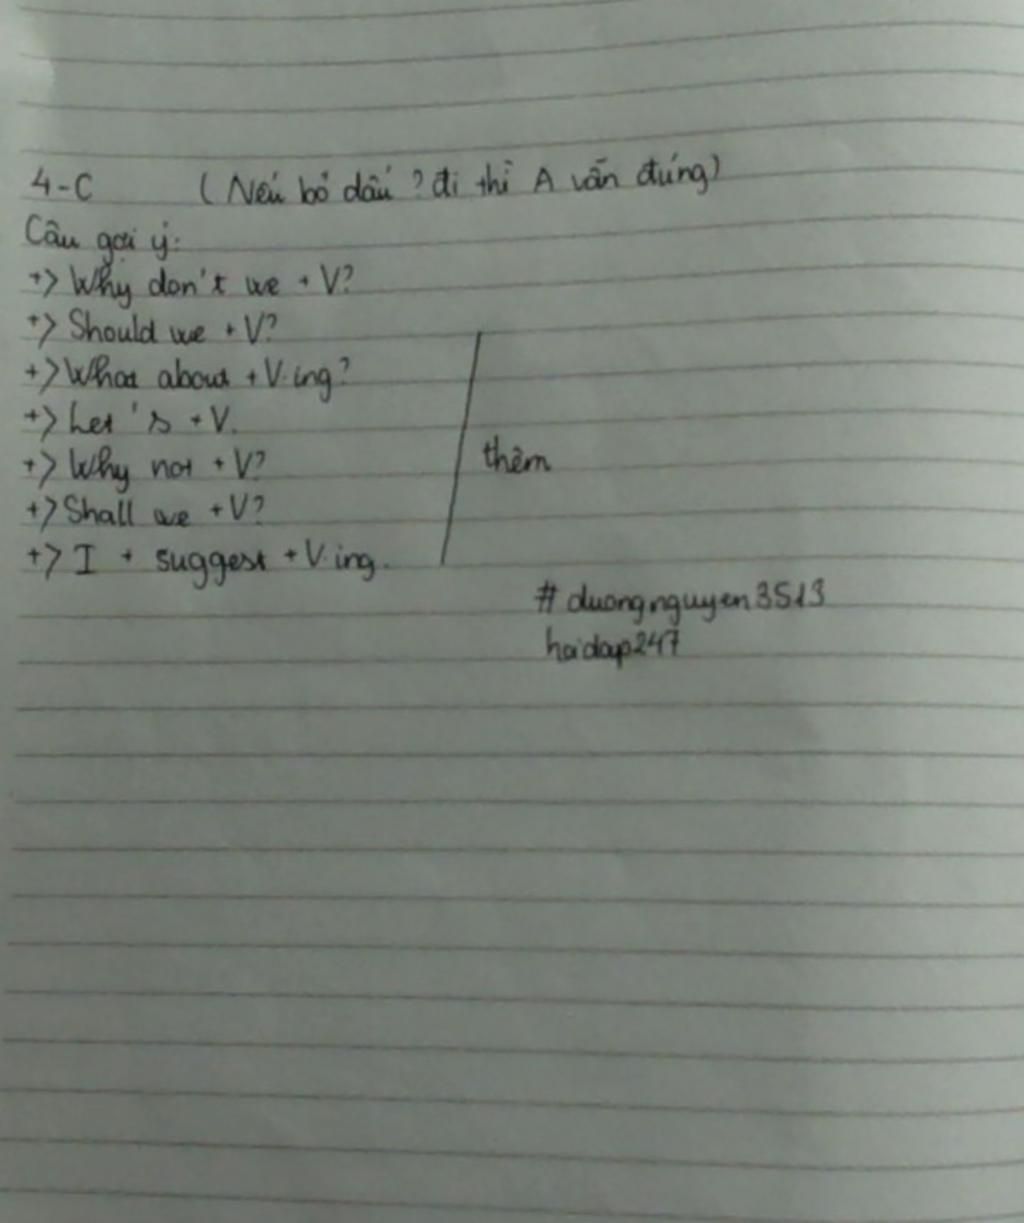 4-C (Nếu bỏ dấu ? đi thì A vẫn đúng)
Câu gợi ý:
+> Why don't we + V?
+> Should we + V?
+> What about + V-ing?
+> Let's + V.
+> Why not + V?
+> Shall we + V?
+> I + suggest + V-ing.
thêm
# duongnguyen3513
hoidap247